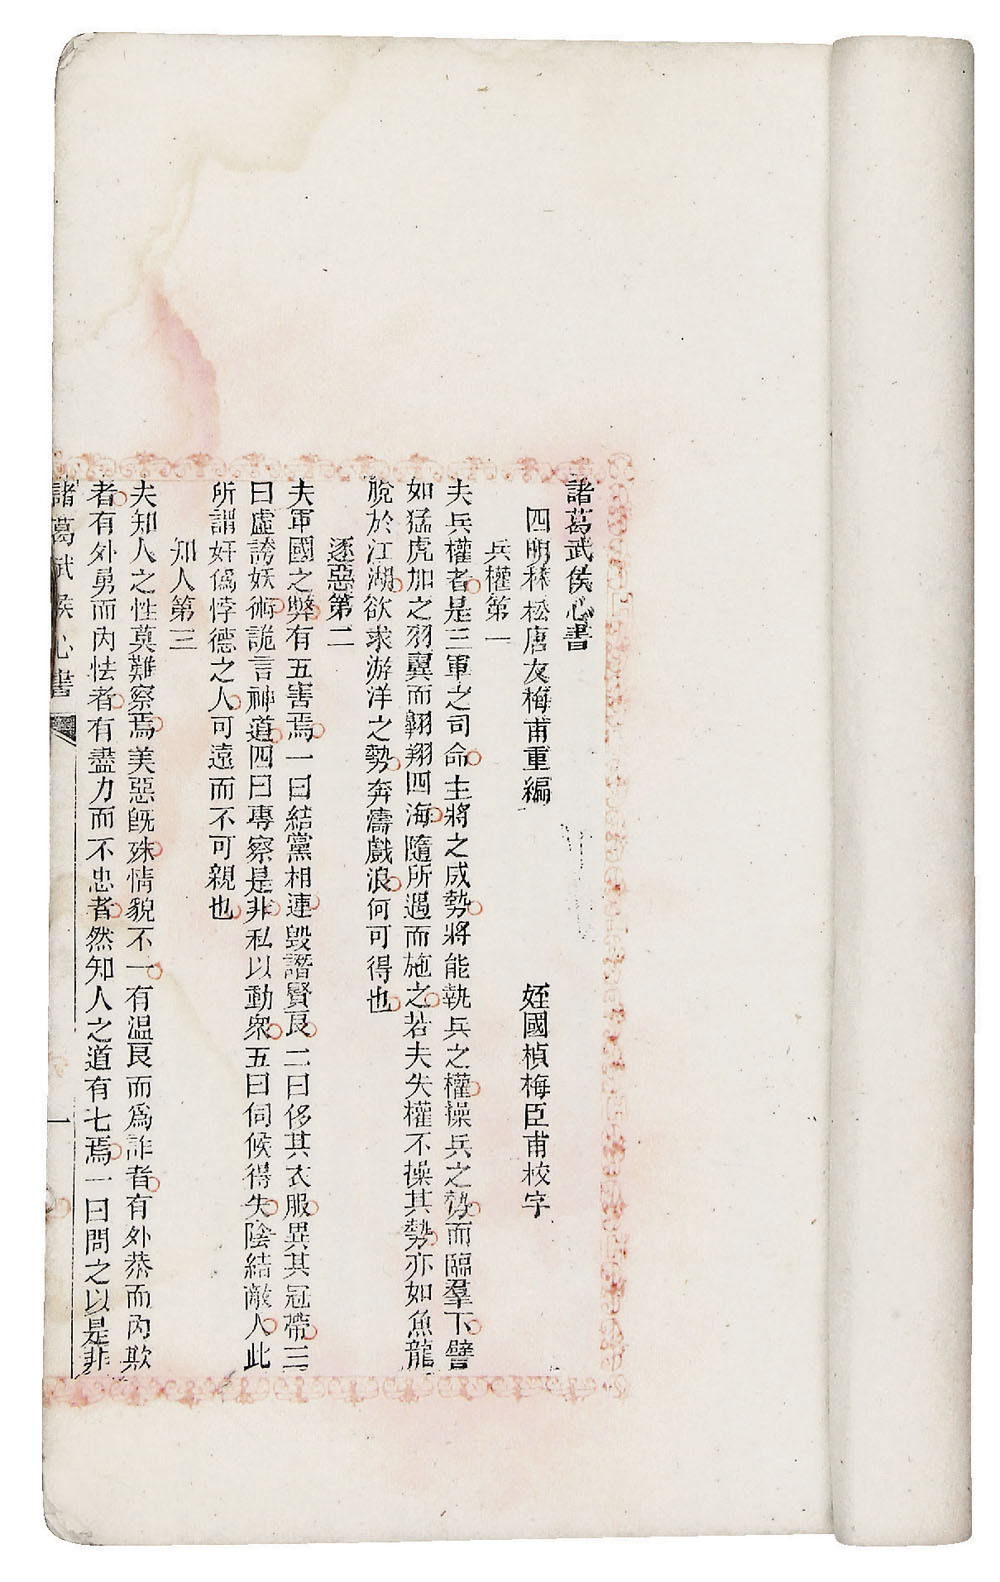 諸葛武侯心書
四明林松唐友梅甫重編　姪國楨梅臣甫校字
兵權第一
夫兵權者是三軍之司命主將之成勢將能執兵之權操兵之勢而臨羣下譬
如猛虎加之羽翼而翱翔四海隨所遇而施之若夫失權不操其勢亦如魚龍
脫於江湖欲求游洋之勢奔濤戲浪何可得也
逐惡第二
夫軍國之弊有五害焉一曰結黨相連毀譖賢良二曰侈其衣服異其冠帶三
曰虛誇妖術詭言神道四曰專察是非私以動衆五曰伺候得失陰結敵人此
所謂奸僞悖德之人可遠而不可親也
知人第三
夫知人之性莫難察焉美惡旣殊情貌不一有温良而爲詐者有外恭而內欺
者有外勇而內怯者有盡力而不忠者然知人之道有七焉一曰問之以是非
諸葛武侯心書　一